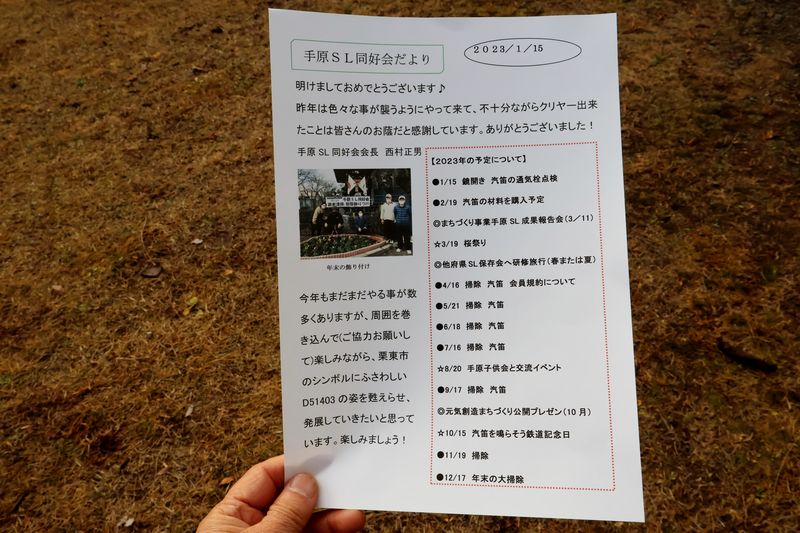 手原SL同好会だより
2023/1/15
明けましておめでとうございます♪
昨年は色々な事が襲うようにやって来て、不十分ながらクリヤー出来
たことは皆さんのお蔭だと感謝しています。ありがとうございました!
手原SL同好会会長 西村正男
年末の飾り付け
今年もまだまだやる事が数
多くありますが、周囲を巻
き込んで(ご協力お願いし
て)楽しみながら、栗東市
のシンボルにふさわしい
D51403の姿を甦えらせ、
発展していきたいと思って
います。楽しみましょう!
【2023年の予定について】
●1/15 鏡開き 汽笛の通気栓点検
●2/19 汽笛の材料を購入予定
◎まちづくり事業手原SL成果報告会(3/11)
☆3/19 桜祭り
◎他府県SL保存会へ研修旅行(春または夏)
●4/16 掃除 汽笛 会員規約について
●5/21 掃除 汽笛
●6/18 掃除 汽笛
●7/16 掃除 汽笛
☆8/20 手原子供会と交流イベント
●9/17 掃除 汽笛
◎元気創造まちづくり公開プレゼン(10月)
☆10/15 汽笛を鳴らそう鉄道記念日
●11/19 掃除
●12/17 年末の大掃除